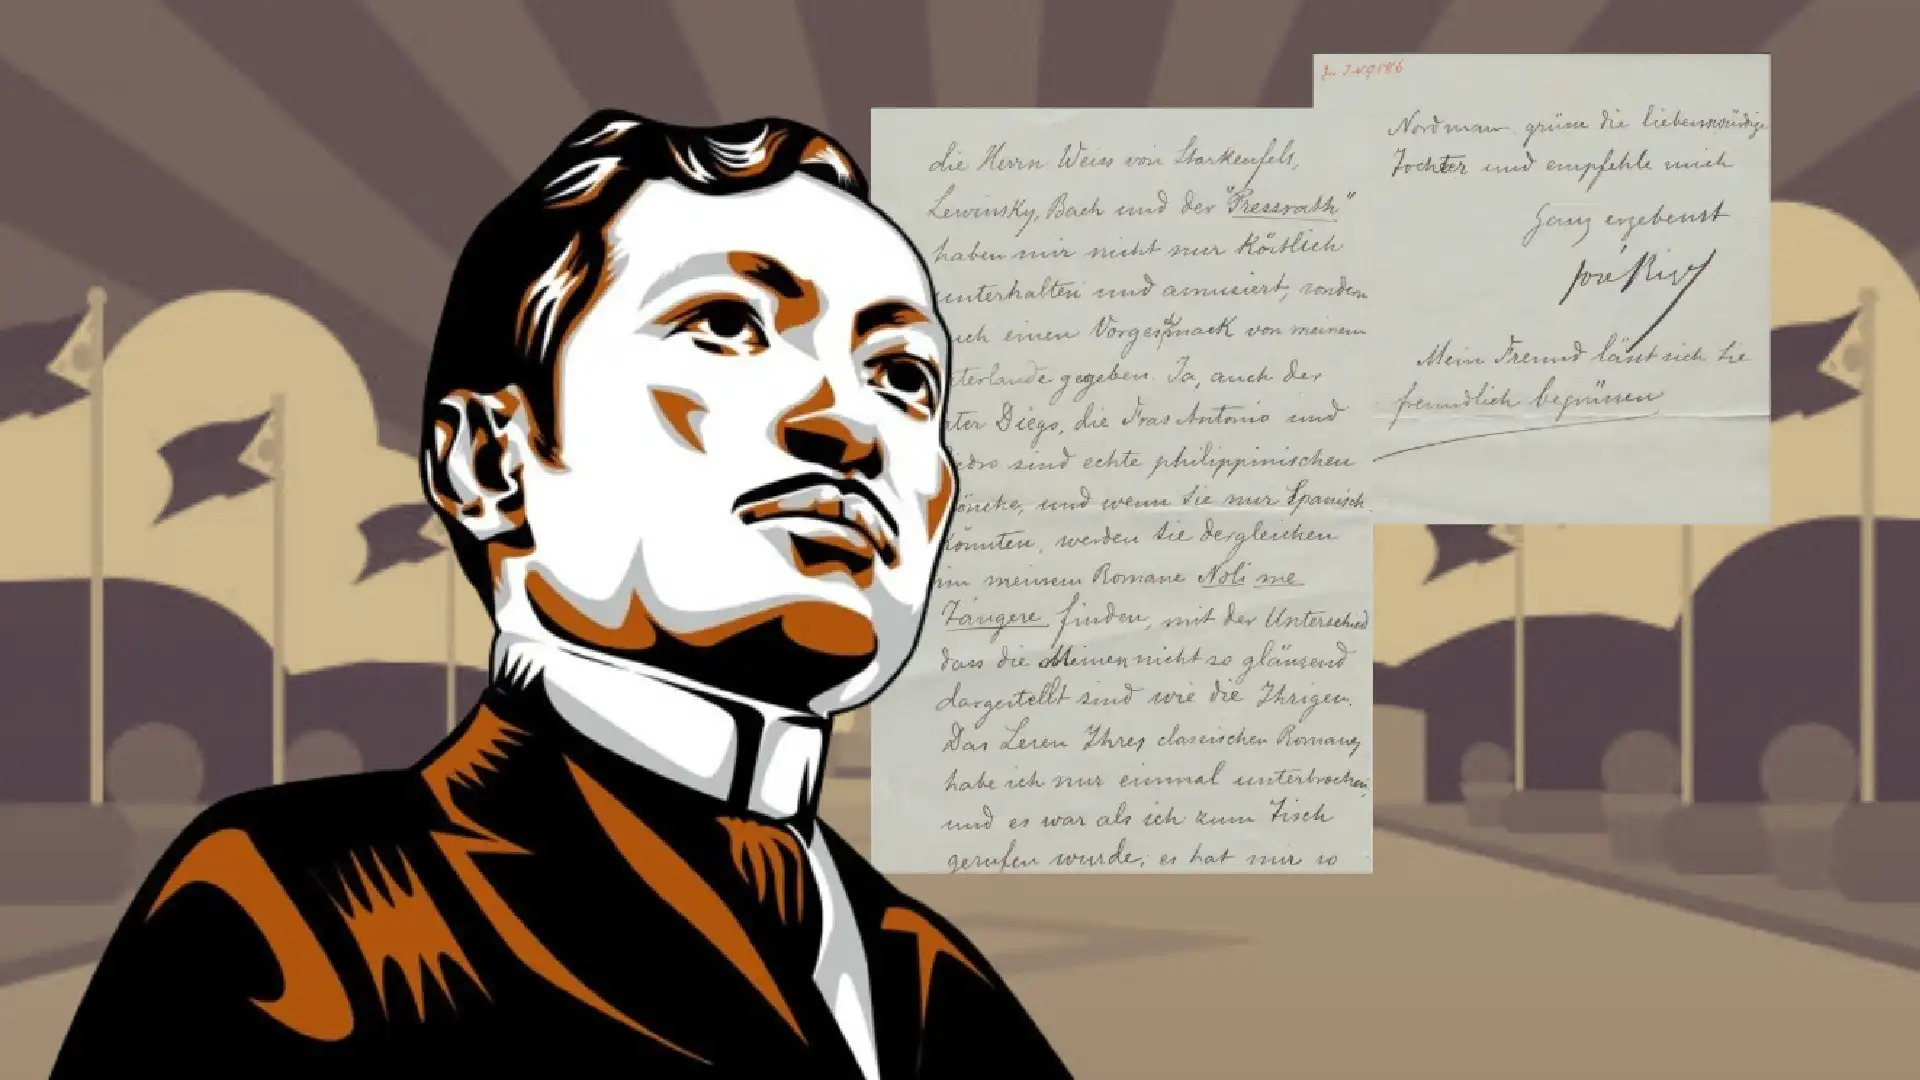 die Herrn Weiss von Starkenfels,
Lewinsky, Bach und der "Pressrath"
haben mir nicht nur köstlich
unterhalten und amusiert, sondern
uch einen Vorgeschmack von meinem
terlande gegeben. Ja, auch der
ater Diego, die Fras Antonio und
edro sind echte philippinischen
önche, und wenn Sie nur Spanisch
könnten, werden Sie dergleichen
in meinem Romane Noli me
Tángere finden, mit der Unterschied
dass die Meinen nicht so glänzend
dargestellt sind wie die Ihrigen.
Das Lesen Ihres classischen Romans
habe ich nur einmal unterbrochen,
und es war als ich zum Tisch
gerufen wurde; es hat mir so
Nordmann grüsse die liebenswürdige
Tochter und empfehle mich
Ganz ergebenst
José Rizal
Mein Freund lässt sich Sie
freundlich begrüssen